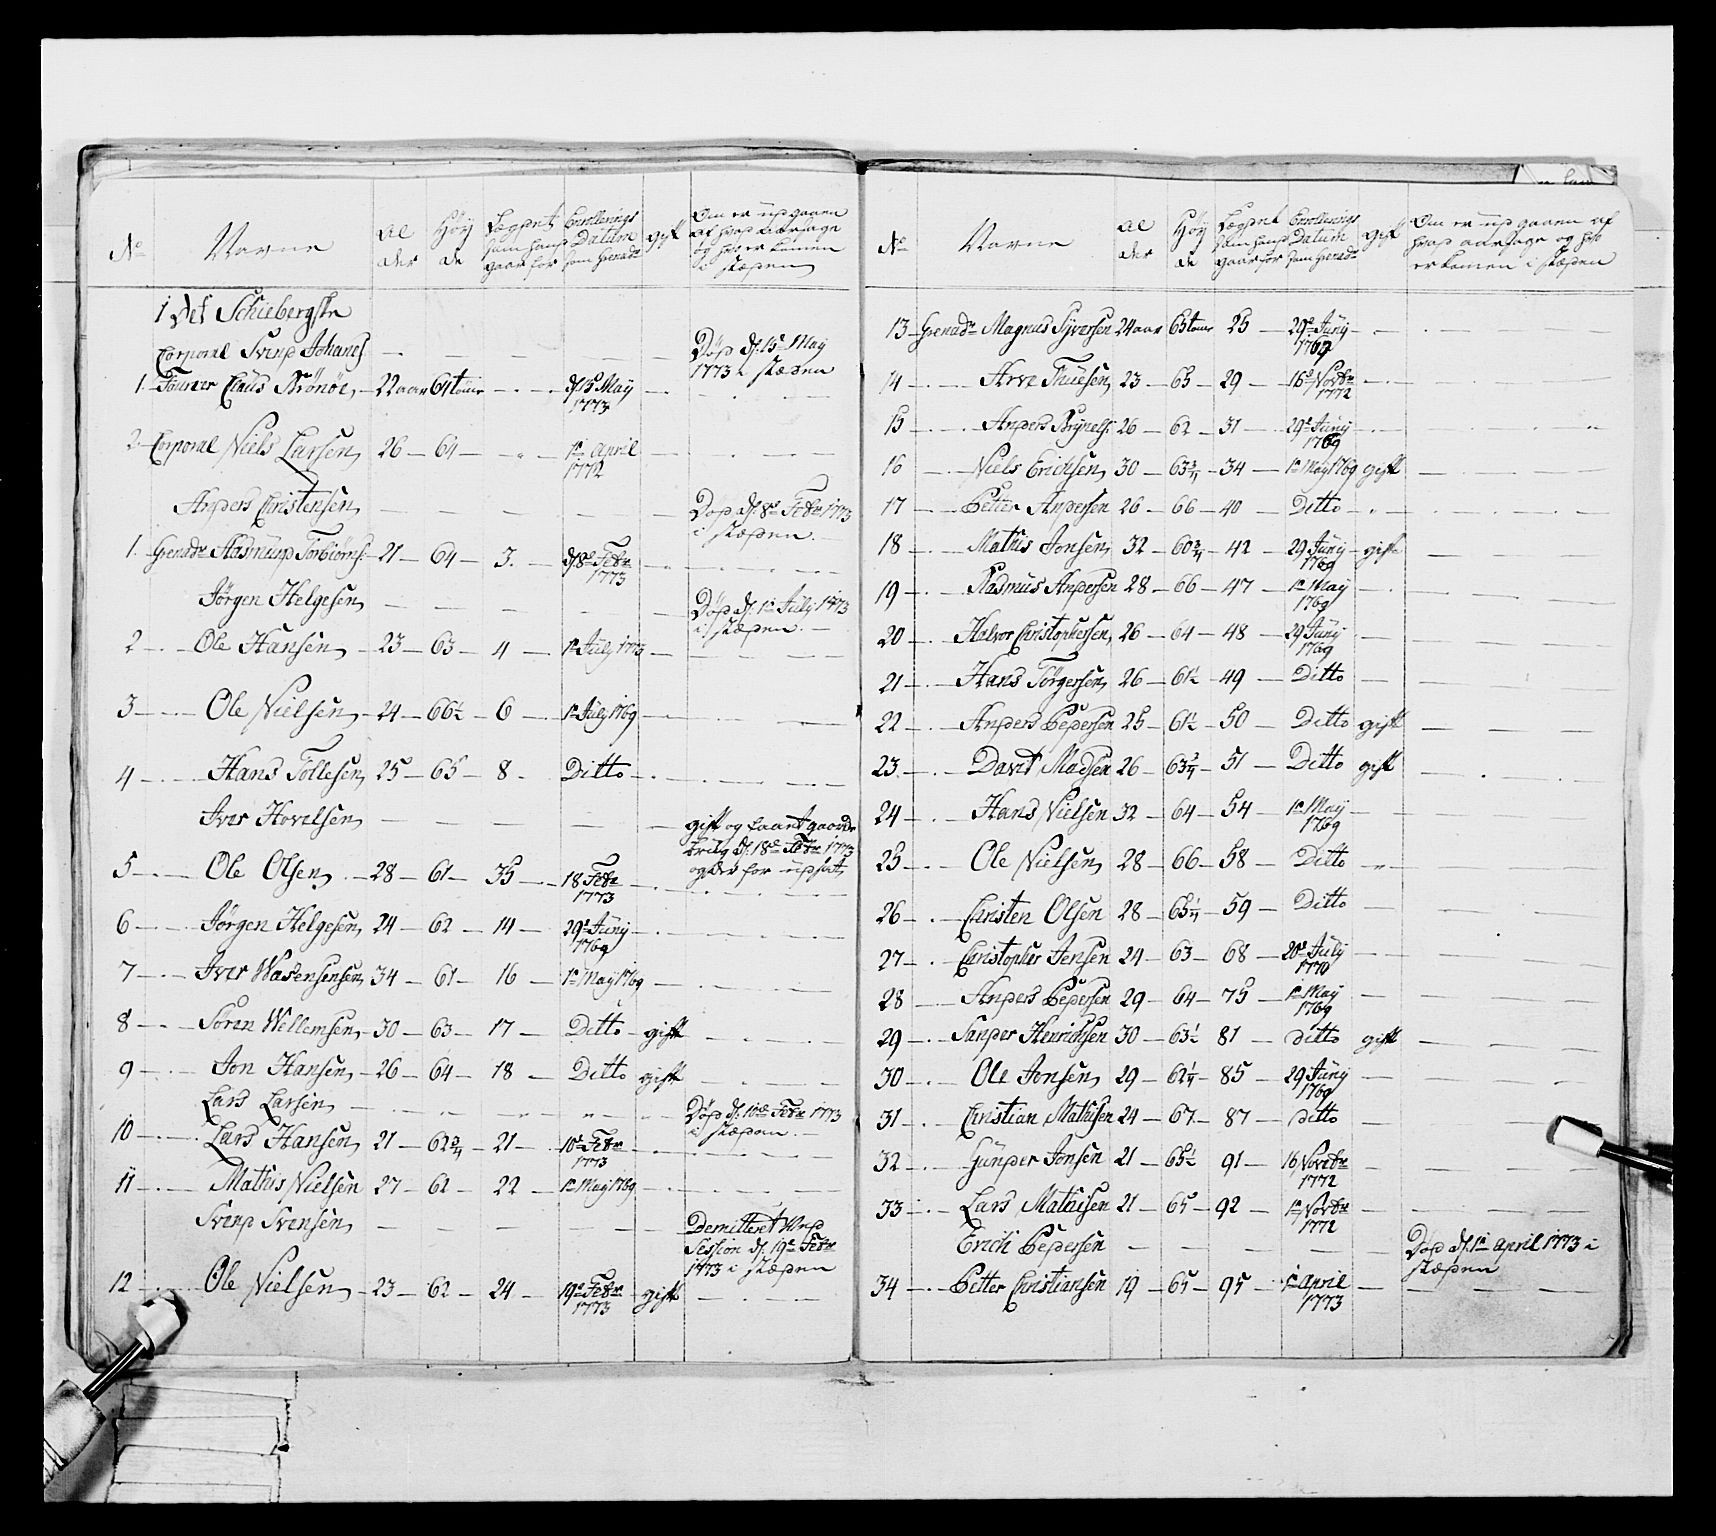 No Navne Al der Høy de Lægget Som hand gaar for Enrollerings Datum Som Grenadr gift Om er udgaaen af hvad aarsage og hvo er komen i stæden
1 Det Schiebergske
Corporal Svend Johans — — — — Død d. 15de May 1773 i stæden
1. Fourer Claus Brønøe 22 aar 61 tomr — d. 15 May 1773
2 Corporal Niels Larsen 26 — 64 — 1e April 1772
Anders Christensen — — — — Død d. 8de Febr 1773 i stæden.
1. Grenadr Aasmund Torbiørns. 21 — 64 — 3. — d. 8de Febr 1773
Jørgen Helgesen — — — — Død d. 1e July 1773 i stæden.
2 — Ole Hansen 23 — 63 — 4 — 1e July 1773
3 — Ole Nielsen 24 — 66½ — 6 — 1e July 1769
4 — Hans Tollesen 25 — 65 — 8 — Ditto
Iver Hovelsen — — — — gift og faaet gaard brug d. 18de Febr 1773 og der for udsat
5 — Ole Olsen 28 — 61 — 35 — 18 Febr 1773
6 — Jørgen Helgesen 24 — 62 — 14 — 29e Juny 1769
7 — Iver 34 — 61 — 16 — 1e May 1769
8 — Søren Wellemsen 30 — 63 — 17 — Ditto — gift
9 — Jon Hansen 26 — 64 — 18 — Ditto gift
Lars Larsen — — — — Død d. 10de Febr 1773 i stæden
10 — Lars Hansen 21 — 62¾ — 21 — 10e Febr 1773
11 — Mathis Nielsen 27 — 62 — 22 — 1e May 1769
Svend Svensen — — — — Demitteret Ved Session d. 19e Febr 1773 i stæden
12 — Ole Nielsen 23 — 62 — 24 — 19e Febr 1773 gift
No Navne Al der Høy de Lægdet Som hand gaar for Enrollerings Datum Som Grenadr gift Om er udgaaen af hvad aarsage og hvo er komen i stæden
13 Grenadr Magnus Syversen 24 aar 65 tomr 25 — 29e Juny 1769
14 — Arve Thuesen 23 — 65 — 29 — 16e Novbr 1772
15 — Anders Brynels. 26 — 62 — 31 — 29e Juny 1769
16 — Niels Erichsen 30 — 63¾ — 34 — 1e May 1769 gift
17 — Petter Andersen 26 — 66 — 40 — Ditto
18 — Mathis Jonsen 32 — 60¾ — 42 — 29 Juny 1769 gift
19 — Rasmus Andersen 28 — 66 — 47 — 1e May 1769
20 — Halvor Christophersen 26 — 64 — 48 — 29 Juny 1769
21 — Hans Törgersen 26 — 61½ — 49 — Ditto
22 — Anders Pedersen 25 — 61½ — 50 — Ditto gift
23 — David Madsen 26 — 63¾ — 51 — Ditto gift
24 — Hans Nielsen 32 — 64 — 54 — 1e May 1769
25 — Ole Nielsen 28 — 66 — 58 — Ditto
26 — Christen Olsen 28 — 65¼ — 59 — Ditto
27 — Christopher Jensen 24 — 63 — 68 — 20e July 1770
28 — Anders Pedersen 29 — 64 — 75 — 1e May 1769
29 — Sander Henrichsen 30 — 63½ 81 — Ditto gift
30 — Ole Jonsen 29 — 62¼ — 85 — 29 Juny 1769
31 — Christian Mathisen 24 — 67 — 87 — Ditto
32 — Gunder Jonsen 21 — 65½ 91 — 16 Novbr 1772
33 — Lars Mathisen 21 — 65 — 92 — 1e Novbr 1772
Erich Pedersen — — — — Død d. 1e April 1773 i stæden
34 — Petter Christiansen 19 — 65 — 95 — 1e April 1773